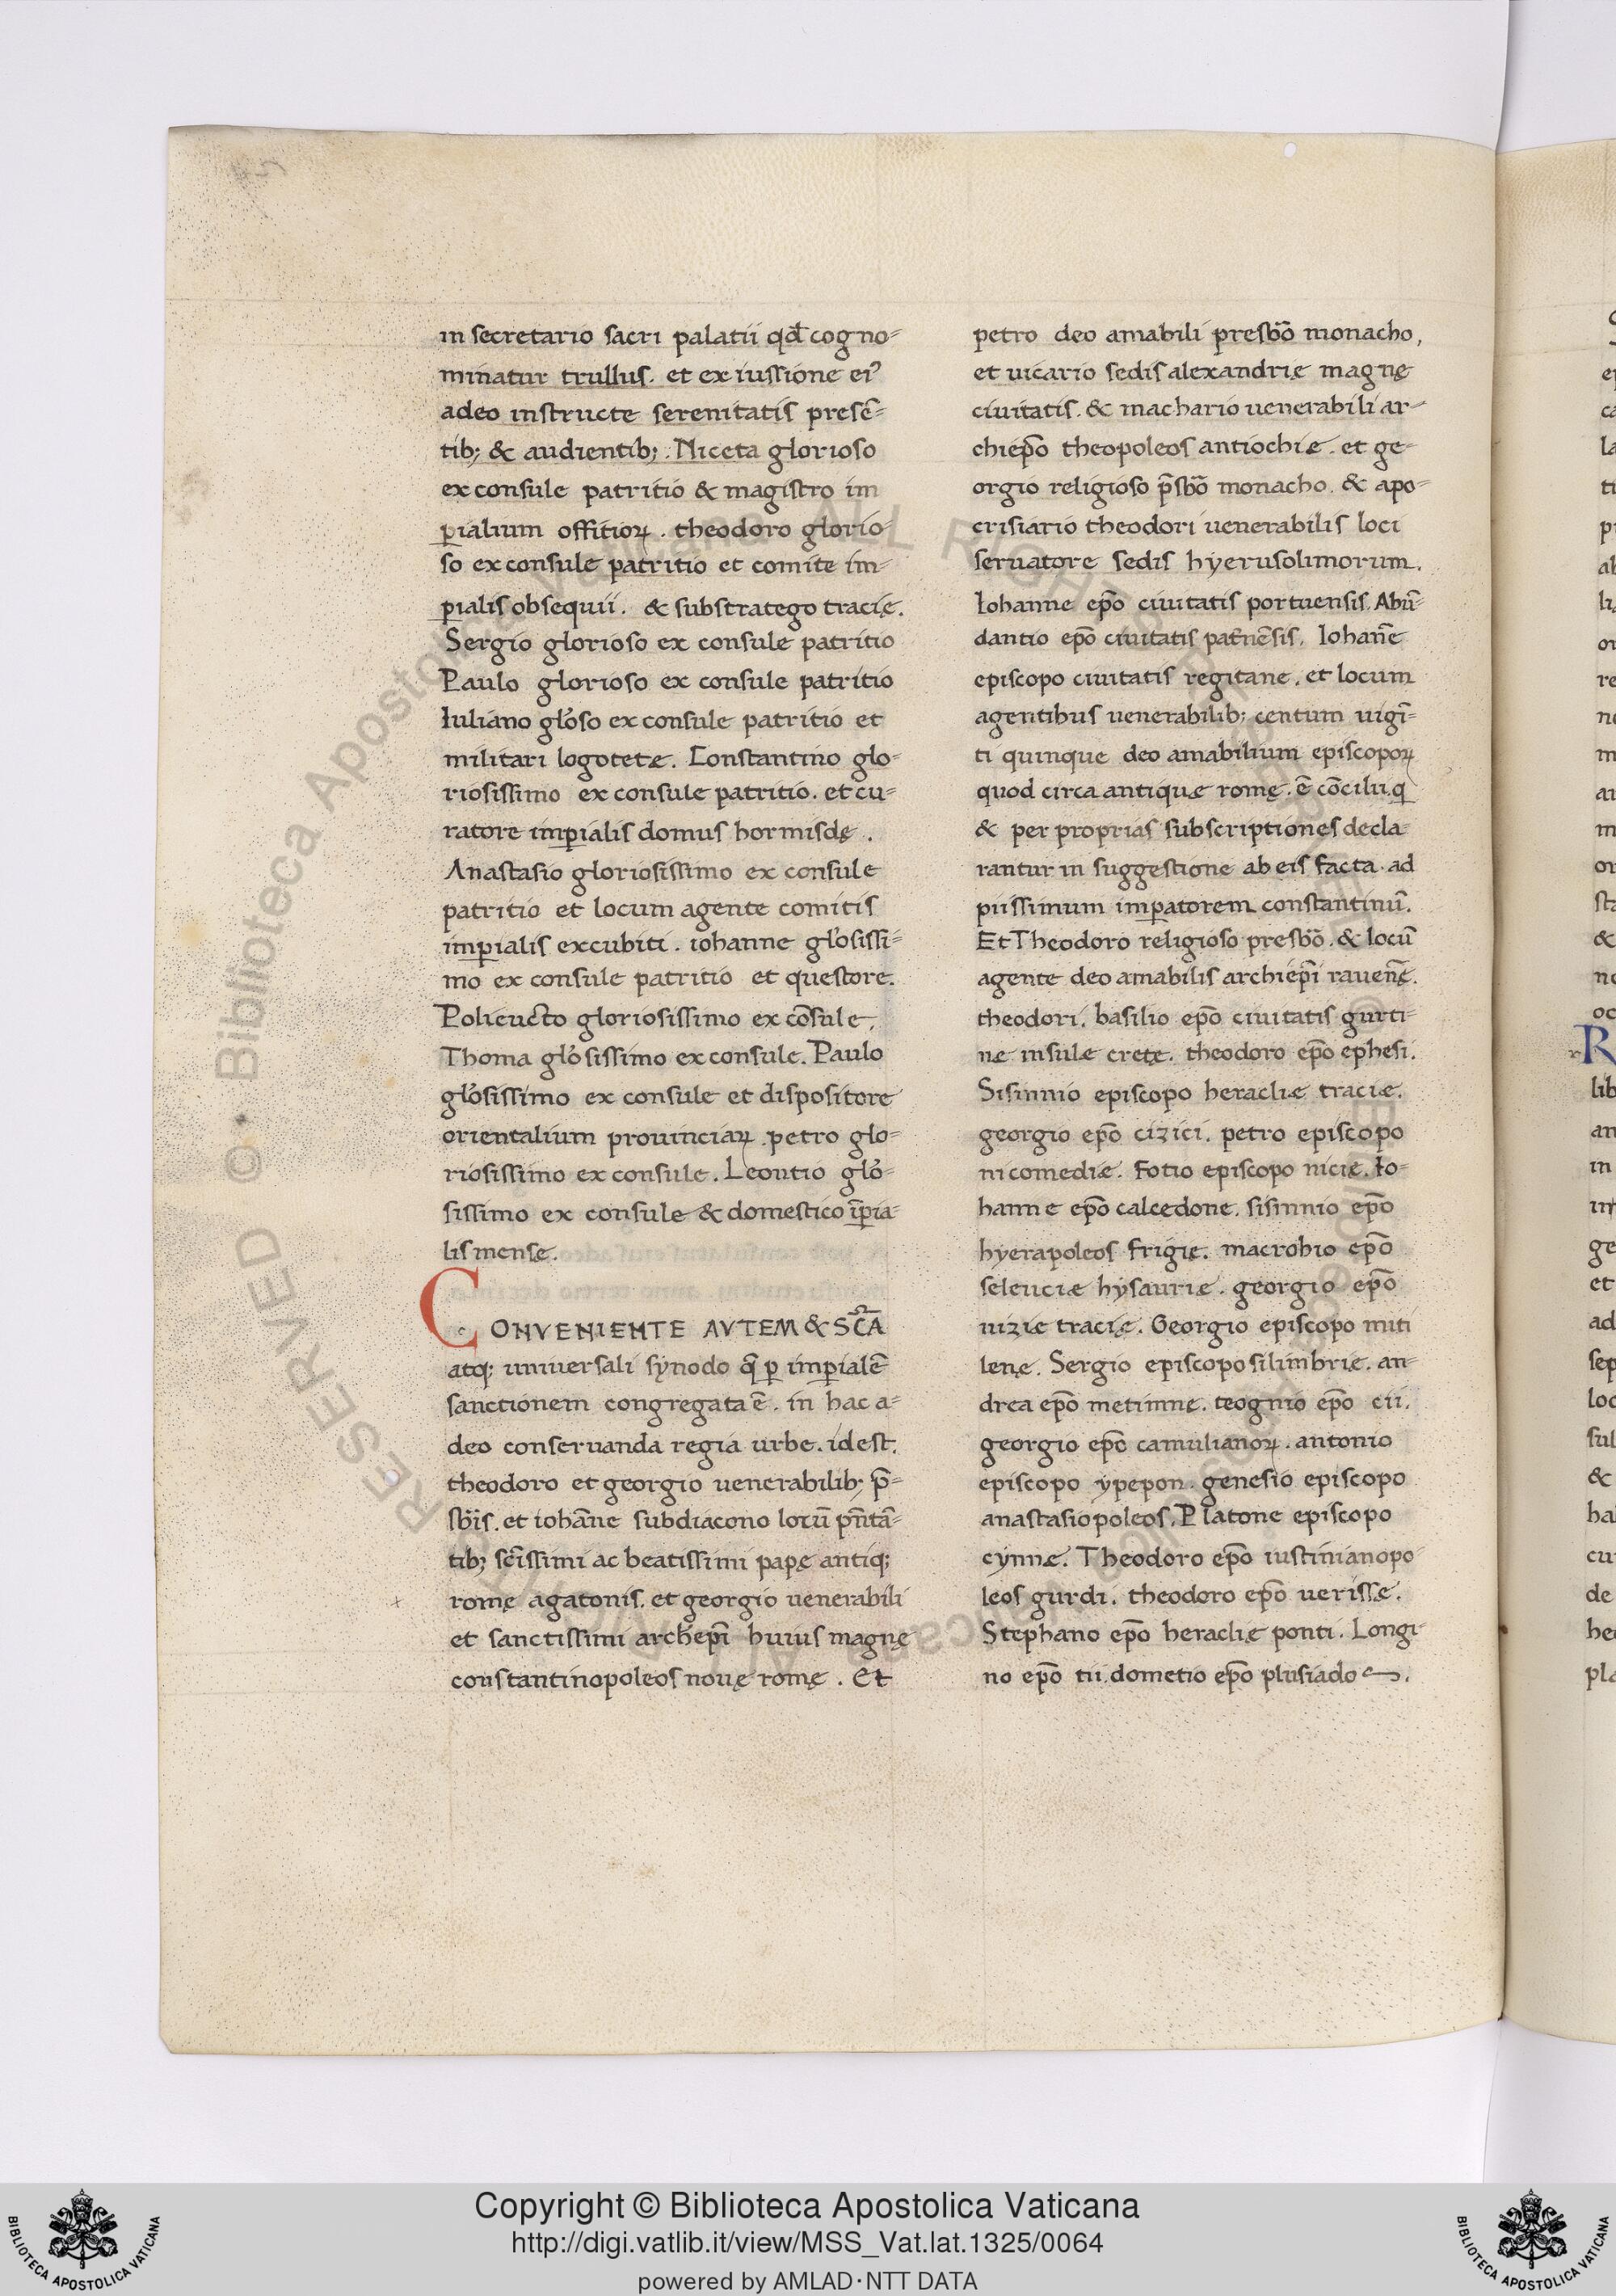 in secretario sacri palatii qđ cogno-
minatur trullus. et ex iussione ei᾽
adeo instructe serenitatis presē-
tib; & audientib; . Niceta glorioso
ex consule patritio & magistro im
ꝑialium offitioꝝ . theodoro glorio-
so ex consule patritio et comite im-
ꝑialis obsequii . & substratego tracię.
Sergio glorioso ex consule patritio
Paulo glorioso ex consule patritio
Iuliano gľoso ex consule patritio et
militari logotetę. Constantino glo-
riosissimo ex consule patritio . et cu-
ratore imꝑialis domus hormisdę .
Anastasio gloriosissimo ex consule
patritio et locum agente comitis
imꝑialis excubiti . iohanne gľosissi-
mo ex consule patritio et questore.
Policucto gloriosissimo ex cōsule.
Thoma gľosissimo ex consule. Paulo
gľosissimo ex consule et dispositore
orientalium prouinciaꝝ . petro glo-
riosissimo ex consule . Leontio gľo-
sissimo ex consule & domestico īꝑia-
lis mensę.
CONVENIENTE AVTEM & SC̄A
atq; uniuersali synodo q̄ ꝑ imꝑialē
sanctionem congregata ē . in hac a-
deo conseruanda regia urbe . id est.
theodoro et georgio uenerabilib; p̄-
sb̄is . et iohāne subdiacono locū pn̄tā-
tib; sc̄issimi ac beatissimi papę antiq;
romę agatonis . et georgio uenerabili
et sanctissimi archep̄i huius magnę
constantinopoleos nouę romę . Et
petro deo amabili presb̄o monacho,
et uicario sedis alexandrię magnę
ciuitatis . & machario uenerabili ar-
chiep̄o theopoleos antiochię . et ge-
orgio religioso p̄sb̄o monacho . & apo-
crisiario theodori uenerabilis loci
seruatore sedis hyerusolimorum.
Iohanne ep̄o ciuitatis portuensis. Abū-
dantio ep̄o ciuitatis patn̄ēsis. Iohan̄e
episcopo ciuitatis regitane . et locum
agentibus uenerabilib; centum uigī-
ti quinque deo amabilium episcopoꝝ
quod circa antique romę . ē cōcilii . q
& per proprias subscriptiones decla
rantur in suggestione ab eis facta . ad
piissimum imꝑatorem constantinū.
Et Theodoro religioso presb̄o . & locū
agente deo amabilis archiep̄i rauen̄ę.
theodori . basilio ep̄o ciuitatis gurti-
nę insulę cretę. theodoro ep̄o ephesi.
Sisinnio episcopo heraclię tracię.
georgio ep̄o cizici . petro episcopo
nicomedię . Fotio episcopo nicię . Io-
hanne ep̄o calcedone . sisinnio ep̄o
hyerapoleos frigię. macrobio ep̄o
seleucię hysaurię . georgio ep̄o
uizię tracię . Georgio episcopo miti
lenę . Sergio episcopo silimbrię . an-
drea ep̄o metimnę . teognio ep̄o cii.
georgio ep̄o camulianoꝝ . antonio
episcopo ypepon . genesio episcopo
anastasiopoleos . Platone episcopo
cynnę. Theodoro ep̄o iustinianopo
leos gurdi . theodoro ep̄o uerissę.
Stephano ep̄o heraclię ponti . Longi-
no ep̄o tii . dometio ep̄o plusiado.
Copyright © Biblioteca Apostolica Vaticana
http://digi.vatlib.it/view/MSS_Vat.lat.1325/0064
powered by AMLAD·NTT DATA